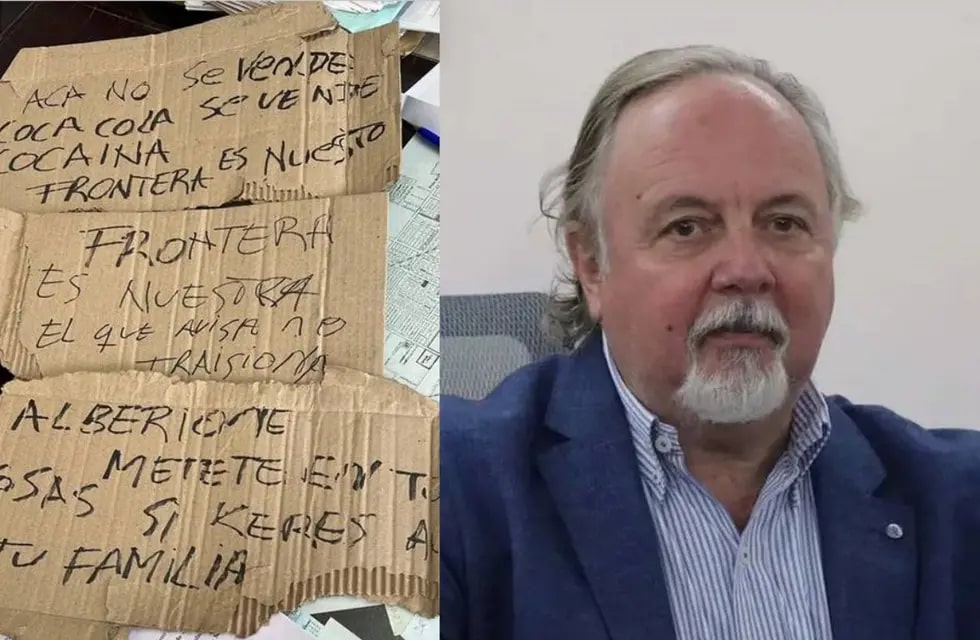 ACA NO Se VENDE
COCA COLA Se VENDE
COCAINA
FRONTERA ES NUESTO
FRONTERA
ES NUESTRA
EL QUE AVISA NO
TRAISIONA
ALBERIONE
METETE EN TU
OSAS SI KERES A
TU FAMILIA